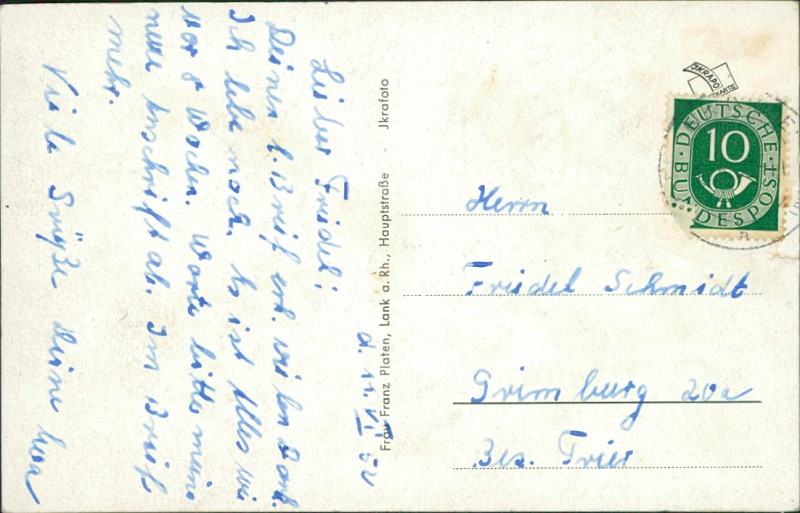 d. 11. VI 52
Lieber Friedel!
Deinen l. Brief erh. vielen Dank.
Ich lebe noch. Es ist Alles wie
vor 8 Wochen. Warte bitte meine
neue Anschrift ab. Im Brief
mehr.
Viele Grüße Deine
Frau Franz Platen, Lank a. Rh., Hauptstraße - Jkrafoto
JKRAFO
KARTE
DEUTSCHE
10
BUNDESPOST
Herrn
Friedel Schmidt
Grimburg 20a
Bez. Trier